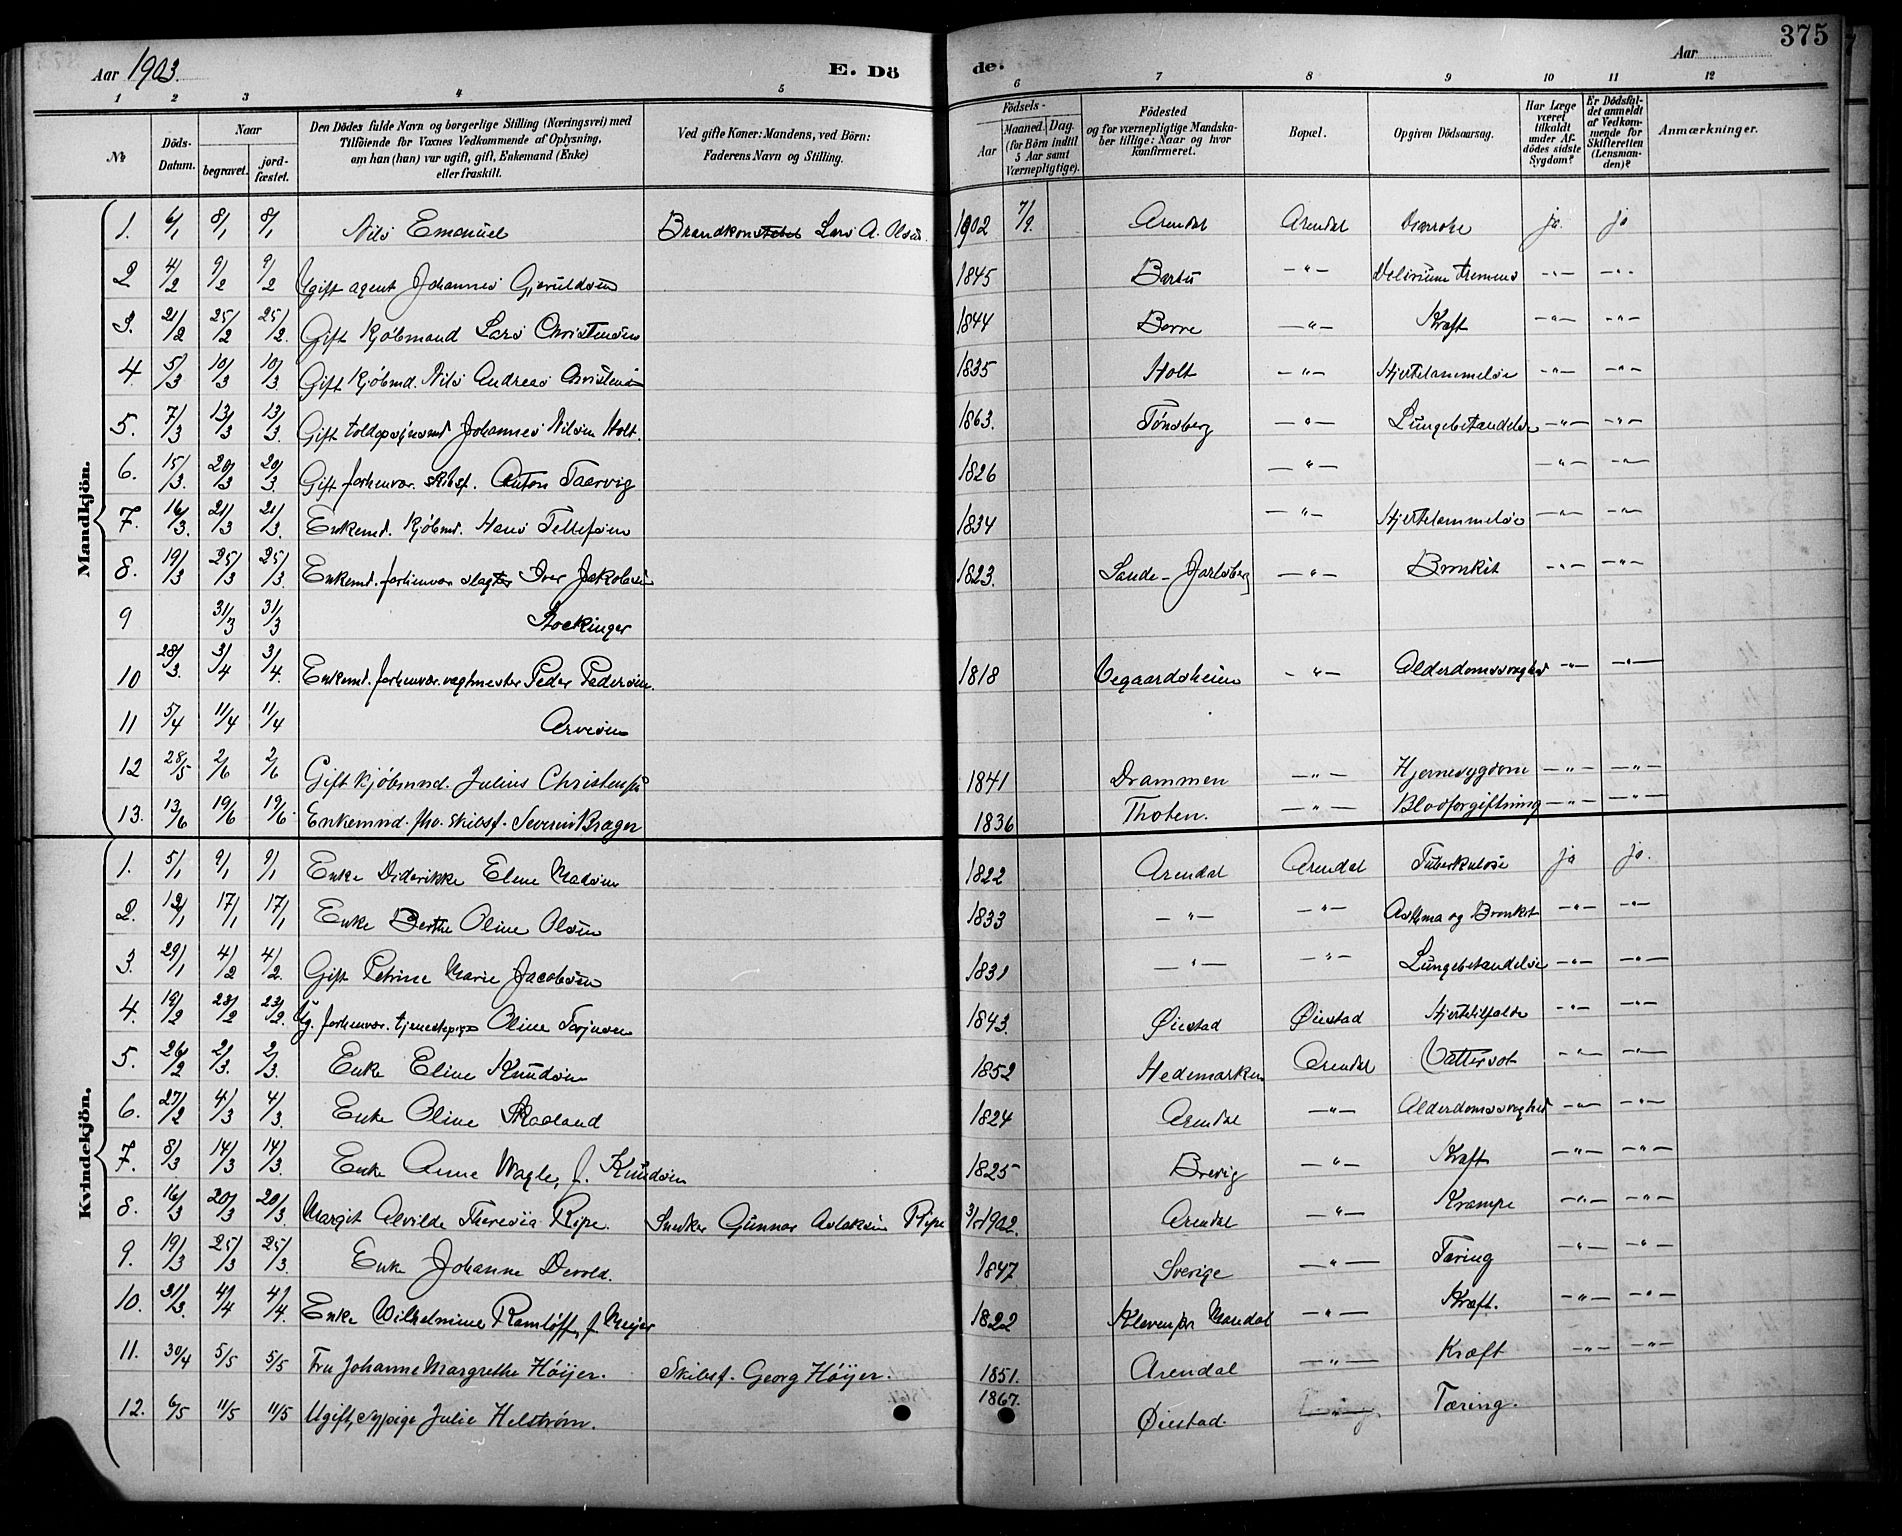 375
Aar 1903.
E. Dö
de.
Aar
1 2 3 4 5 6 7 8 9 10 11 12
№
Döds-Datum.
Naar
begravet.
jordfæstet.
Den Dödes fulde Navn og borgerlige Stilling (Næringsvei) med
Tilföiende for Voxnes Vedkommende af Oplysning,
om han (hun) var ugift, gift, Enkemand (Enke)
eller fraskilt.
Ved gifte Koner: Mandens, ved Börn:
Faderens Navn og Stilling.
Födsels-
Aar
Maaned. Dag.
(for Börn indtil
5 Aar samt
Værnepligtige).
Födested
og for værnepligtige Mandska-
ber tillige: Naar og hvor
konfirmeret.
Bopæl.
Opgiven Dödsaarsag.
Har Læge
været
tilkaldt
under Af-
dödes sidste
Sygdom?
Er Dödsfal-
det anmeldt
af Vedkom-
mende for
Skifteretten
(Lensman-
den)?
Anmærkninger.
Mandkjön.
1. 6/1 8/1 8/1 Nils Emanuel Brandkonstabel Lars A. Olsen. 1902 7/9. Arendal Arendal Diarrohe ja. ja
2 4/2 9/2 9/2 Ugift agent Johannes Gjeruldsen 1845 Barbu -"- Delirium tremens -"- -"-
3. 21/2 25/2 25/2. Gift Kjöbmand Lars Christensen 1844 Borre -"- Kræft -"- -"-
4. 5/3 10/3 10/3. Gift Kjöbmd. Nils Andreas Christensen 1835 Holt -"- Hjertelammelse -"- -"-
5. 7/3 13/3 13/3. Gift toldopsynsmd Johannes Nilsen Holt. 1863. Tönsberg -"- Lungebetændelse -"- -"-
6. 15/3. 20/3 20/3. Gift forhenvær. skibsf. Anton Taarvig 1826 -"- -"- -"-
7. 16/3. 21/3 21/3. Enkemd. Kjöbmd. Hans Tellefsen 1834 -"- Hjertelammelse -"- -"-
8. 19/3 25/3 25/3. Enkemd. forhenvær slagter Iver Jakobsen 1823. Sande - Jarlsberg -"- Bronkit -"- -"-
9 31/3 31/3 Stockinger
10 28/3. 3/4 3/4. Enkemd. forhenvær. vagtmester Peder Pedersen. 1818 Vegaardsheien -"- Alderdomssvaghed -"- -"-
11 5/4 11/4 11/4 Arvesen
12 28/5 2/6 2/6 Gift kjöbmnd. Julius Christensen 1841 Drammen -"- Hjernesygdom -"- -"-
13. 13/6 19/6 19/6. Enkemnd. fhv. skibsf. Severin Brager 1836 Thoten. -"- Blodforgiftning -"- -"-
Kvindekjön.
1. 5/1 9/1 9/1 Enke Diderikke Elene Madsen 1822 Arendal Arendal Tuberkulose ja ja.
2. 12/1 17/1 17/1 Enke Berthe Oline Olsen 1833 -"- -"- Asthma og Bronkit -"- -"-
3. 29/1 4/2 4/2. Gift Petrine Marie Jacobsen 1831 -"- -"- Lungebetændelse -"- -"-
4. 19/2 23/2 23/2. Ug. forhenvær. tjenestepige Oline Terjesen 1843. Öiestad Öiestad Hjertetilfælde -"- -"-
5. 26/2 2/3. 2/3. Enke Eline Knudsen 1852 Hedemarken Arendal Vattersot -"- -"-
6. 27/2 4/3 4/3. Enke Oline Skaaland 1824 Arendal -"- Alderdomssvaghed -"- -"-
7. 8/3 14/3 14/3. Enke Anne Wagle, f. Knudsen 1825 Brevig -"- Kræft -"- -"-
8. 16/3 20/3 20/3. Margit Alvilde Theresia Ripe. Snekker Gunnar Aslaksen Ripe 1902. Arendal -"- Krampe -"- -"-
9. 19/3 25/3 25/3. Enke Johanne Devold. 1847 Sverige -"- Tæring -"- -"-
10. 31/3. 4/4 4/4. Enke Wilhelmine Ramlöff, f. Meijer 1822 Kleven pr Mandal -"- Kræft. -"- -"-
11. 30/4 5/5 5/5 Fru Johanne Margrethe Höijer. Skibsf. Georg Höijer. 1851. Arendal -"- Kræft -"- -"-
12. 6/5 11/5 11/5 Ugift, sypige Julie Helström. 1867. Öiestad. -"- Tæring.